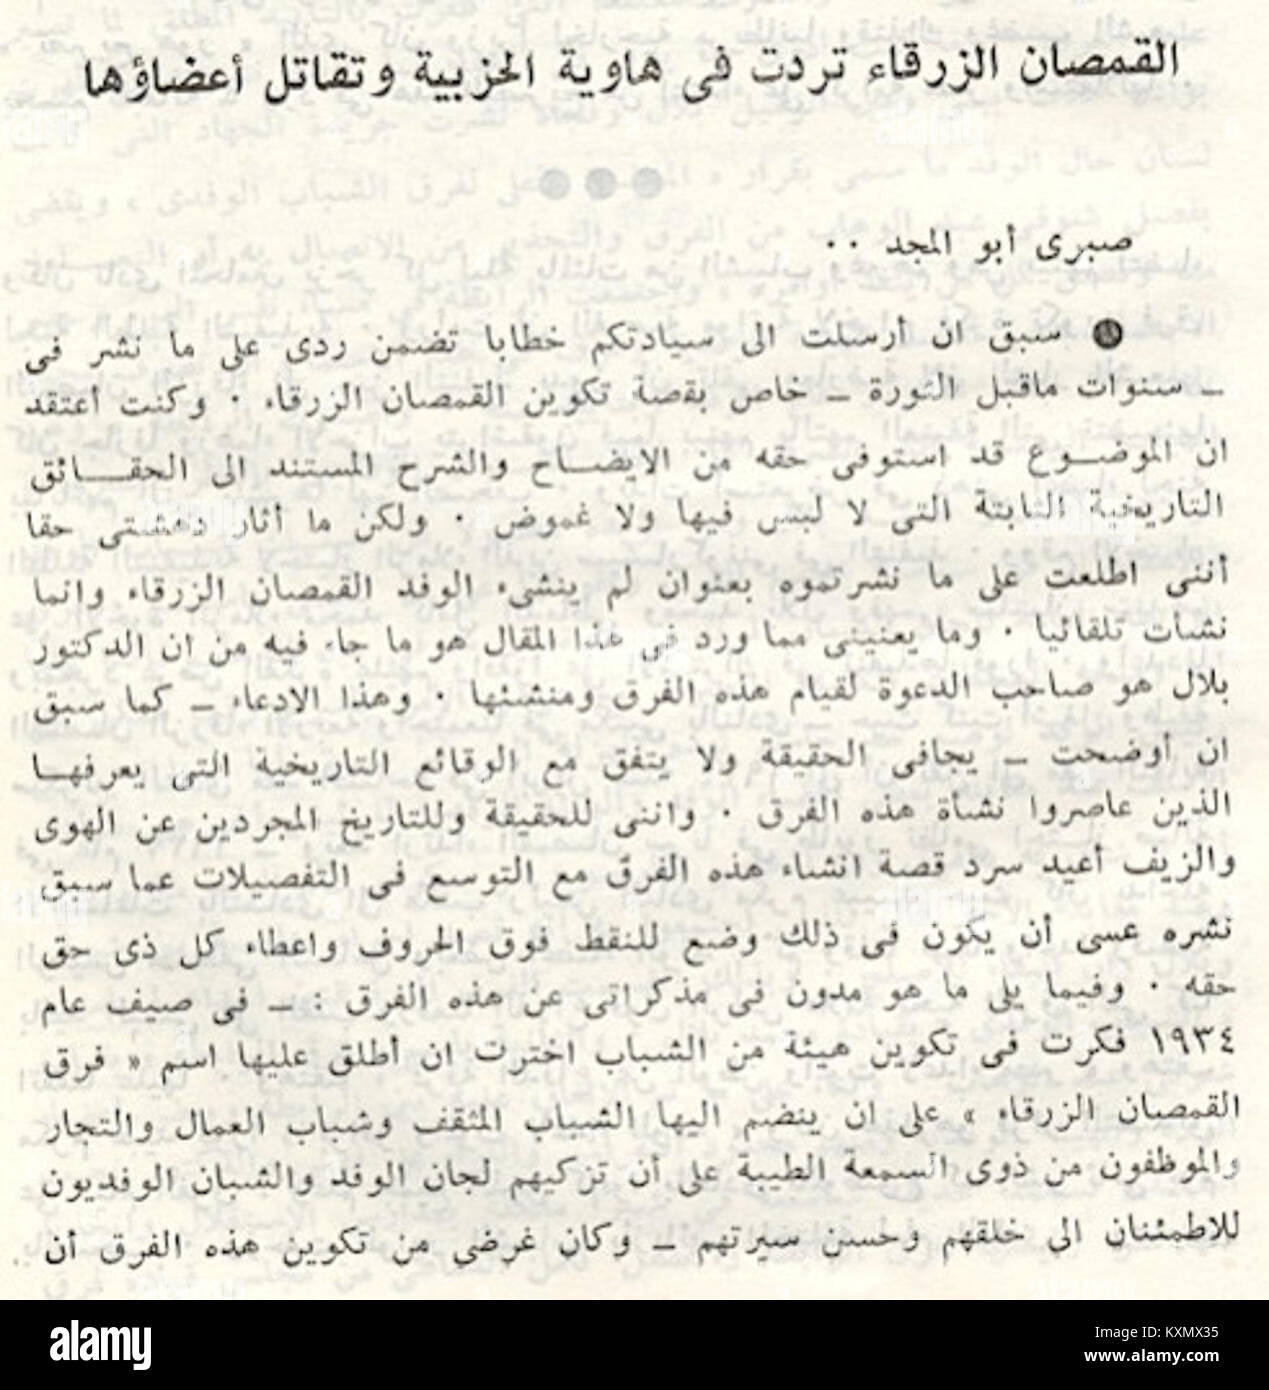 القمصان الزرقاء تردت فى هاوية الحزبية وتقاتل أعضاؤها
صبرى أبو المجد ٠٠
سبق ان أرسلت الى سيادتكم خطابا تضمن ردى على ما نشر فى
ــ سنوات ماقبل الثورة ــ خاص بقصة تكوين القمصان الزرقاء ٠ وكنت أعتقد
ان الموضــوع قد استوفى حقه من الايضــاح والشرح المستند الى الحقــائق
التاريخية الثابتة التى لا لبس فيها ولا غموض ٠ ولكن ما أثار دهشتى حقا
أننى اطلعت على ما نشرتموه بعنوان لم ينشىء الوفد القمصان الزرقاء وانما
نشأت تلقائيا ٠ وما يعنينى مما ورد فى هذا المقال هو ما جاء فيه من ان الدكتور
بلال هو صاحب الدعوة لقيام هذه الفرق ومنشئها ٠ وهذا الادعاء ــ كما سبق
ان أوضحت ــ يجافى الحقيقة ولا يتفق مع الوقائع التاريخية التى يعرفهــا
الذين عاصروا نشأة هذه الفرق ٠ واننى للحقيقة وللتاريخ المجردين عن الهوى
والزيف أعيد سرد قصة انشاء هذه الفرق مع التوسع فى التفصيلات عما سبق
نشره عسى أن يكون فى ذلك وضع للنقط فوق الحروف واعطاء كل ذى حق
حقه ٠ وفيما يلى ما هو مدون فى مذكراتى عن هذه الفرق : ــ فى صيف عام
١٩٣٤ فكرت فى تكوين هيئة من الشباب اخترت ان أطلق عليها اسم « فرق
القمصان الزرقاء » على ان ينضم اليها الشباب المثقف وشباب العمال والتجار
والموظفون من ذوى السمعة الطيبة على أن تزكيهم لجان الوفد والشبان الوفديون
للاطمئنان الى خلقهم وحسن سيرتهم ــ وكان غرضى من تكوين هذه الفرق أن
alamy
Image ID: KXMX35
www.alamy.com